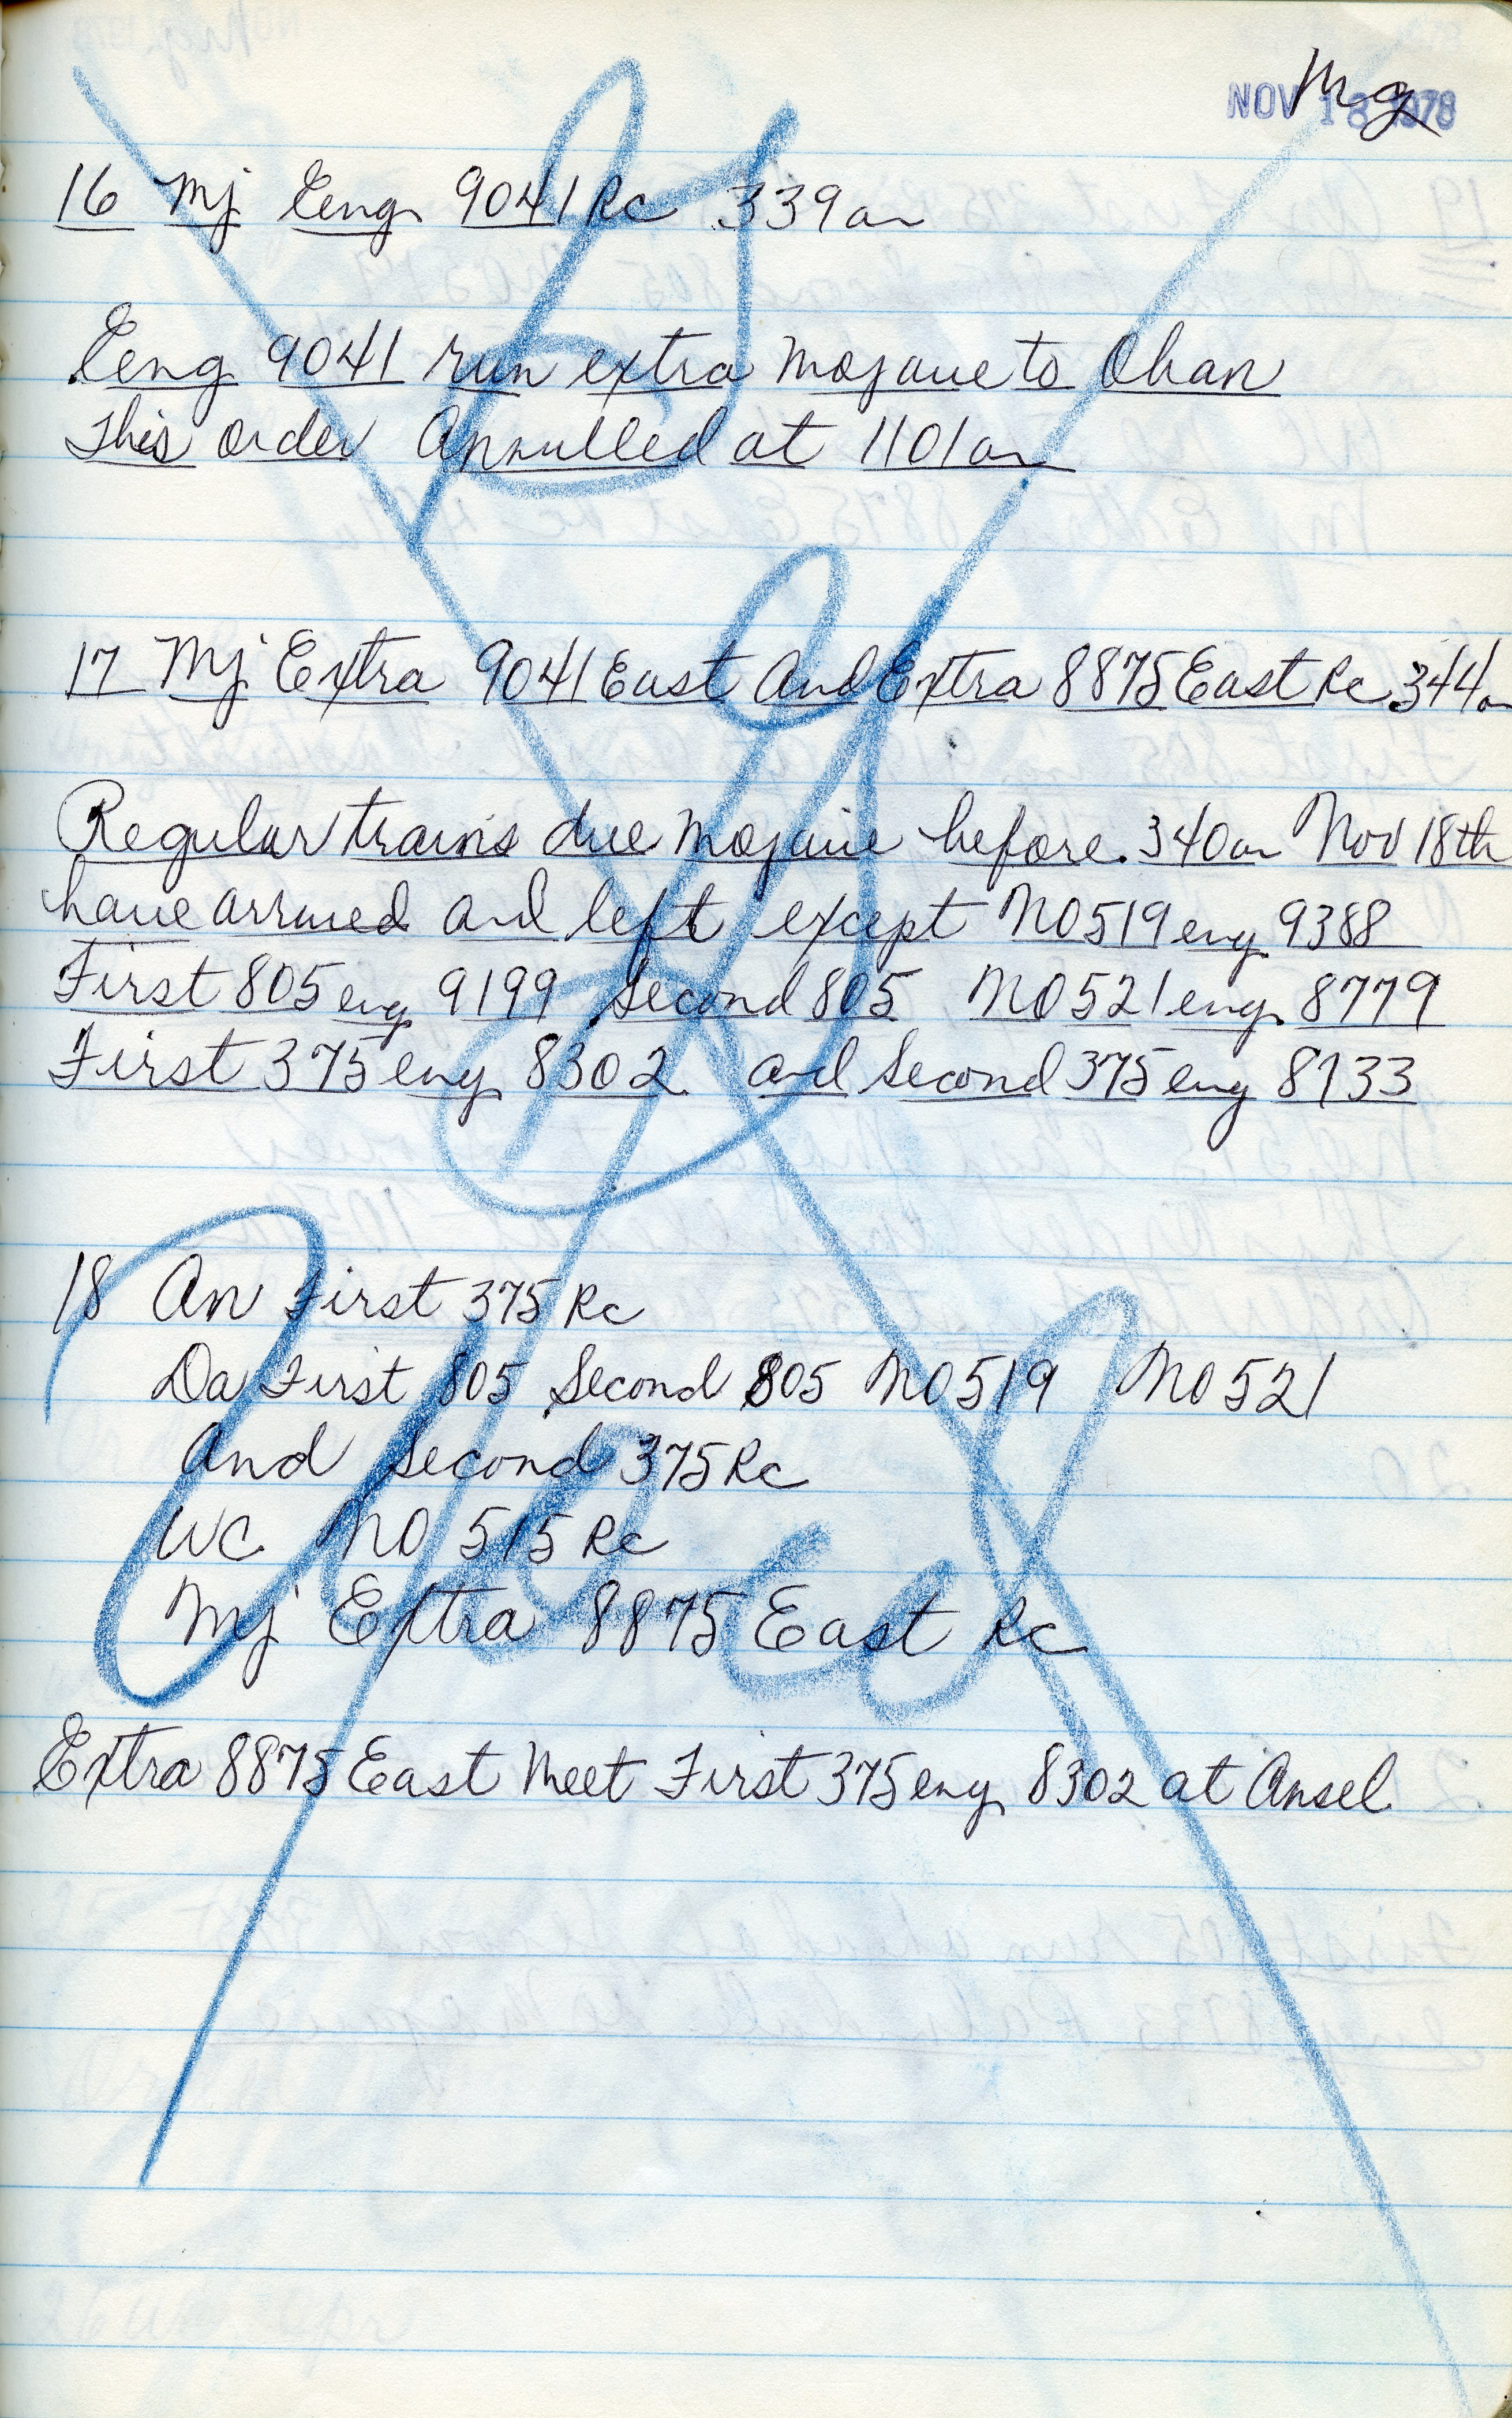 Mg
NOV 18 1978
16 Mj Eeng 9041 Rc 339am
Eeng 9041 run extra Mojave to Oban
This order Annulled at 1101am
17 Mj Extra 9041 East And Extra 8875 East Rc 344am
Regular trains due Mojave before 340am Nov 18th
have arrived and left except NO 519 eng 9388
First 805 eng 9199 Second 805 NO 521 eng 8779
First 375 eng 8302 and Second 375 eng 8733
18 An First 375 Rc
Da First 805 Second 805 NO 519 NO 521
And Second 375 Rc
WC NO 515 Rc
Mj Extra 8875 East Rc
Extra 8875 East Meet First 375 eng 8302 at Ansel